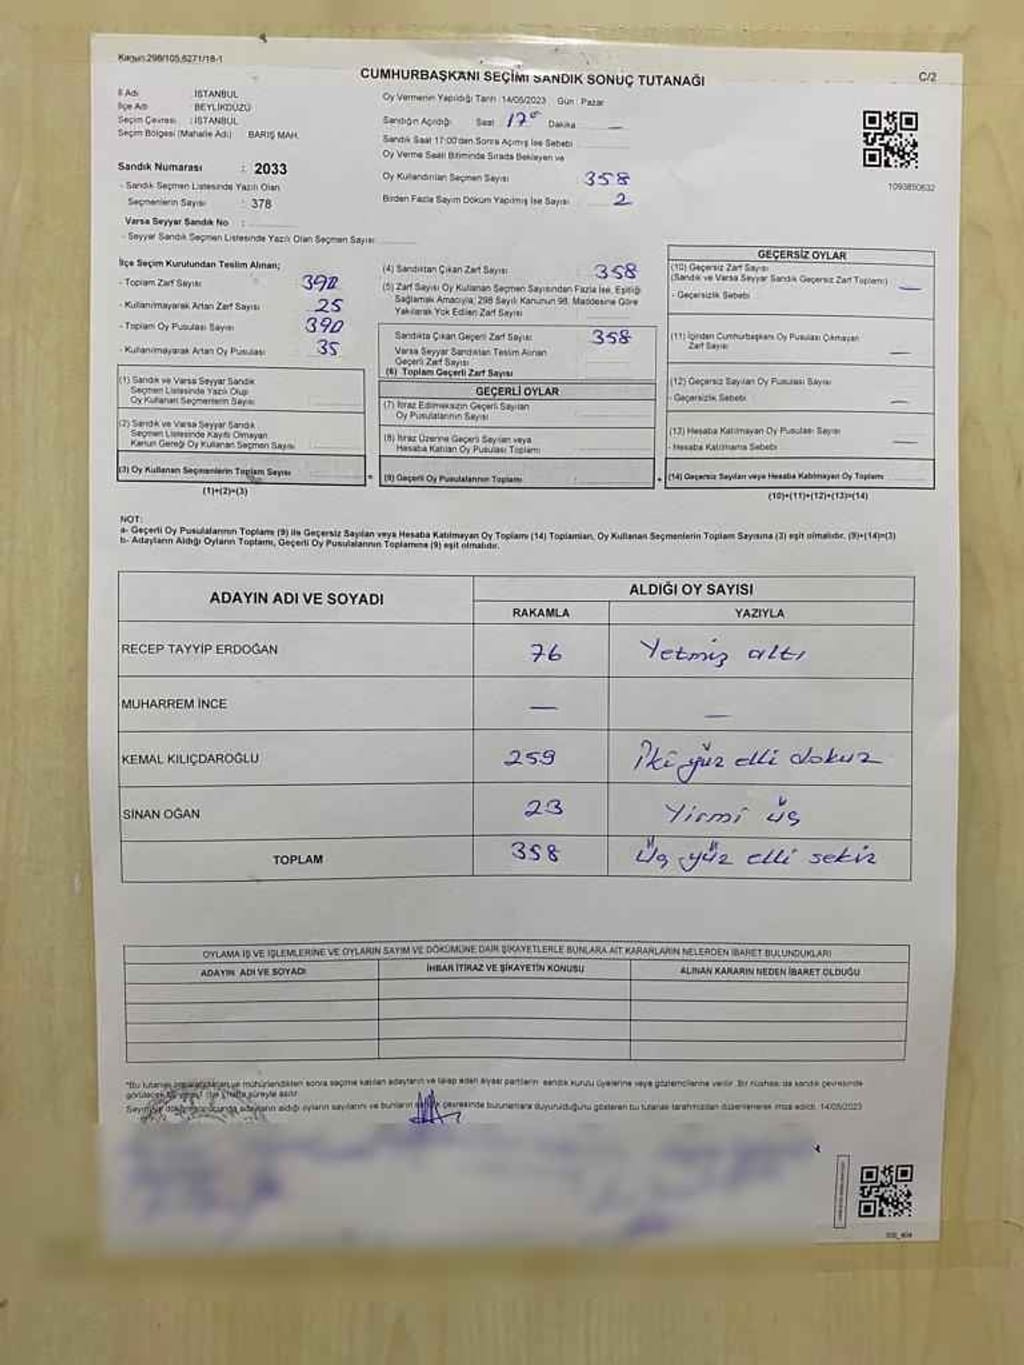 Kanun:298/105,6271/18-1
CUMHURBAŞKANI SEÇİMİ SANDIK SONUÇ TUTANAĞI
C/2
İl Adı : İSTANBUL
İlçe Adı : BEYLİKDÜZÜ
Seçim Çevresi : İSTANBUL
Seçim Bölgesi (Mahalle Adı) : BARIŞ MAH.
Sandık Numarası : 2033
- Sandık Seçmen Listesinde Yazılı Olan
Seçmenlerin Sayısı : 378
Varsa Seyyar Sandık No :
- Seyyar Sandık Seçmen Listesinde Yazılı Olan Seçmen Sayısı
Oy Vermenin Yapıldığı Tarih :14/05/2023 Gün : Pazar
Sandığın Açıldığı Saat : 17 Dakika —
Sandık Saat 17:00'den Sonra Açılmış İse Sebebi
Oy Verme Saati Bitiminde Sırada Bekleyen ve
Oy Kullandırılan Seçmen Sayısı : 358
Birden Fazla Sayım Döküm Yapılmış İse Sayısı : 2
1093850632
İlçe Seçim Kurulundan Teslim Alınan;
- Toplam Zarf Sayısı : 390
- Kullanılmayarak Artan Zarf Sayısı : 25
- Toplam Oy Pusulası Sayısı : 390
- Kullanılmayarak Artan Oy Pusulası : 35
(1) Sandık ve Varsa Seyyar Sandık
Seçmen Listesinde Yazılı Olup
Oy Kullanan Seçmenlerin Sayısı
(2) Sandık ve Varsa Seyyar Sandık
Seçmen Listesinde Kayıtlı Olmayan
Kanun Gereği Oy Kullanan Seçmen Sayısı
(3) Oy Kullanan Seçmenlerin Toplam Sayısı
(1)+(2)=(3)
(4) Sandıktan Çıkan Zarf Sayısı : 358
(5) Zarf Sayısı Oy Kullanan Seçmen Sayısından Fazla İse, Eşitliği
Sağlamak Amacıyla; 298 Sayılı Kanunun 98. Maddesine Göre
Yakılarak Yok Edilen Zarf Sayısı
Sandıkta Çıkan Geçerli Zarf Sayısı : 358
Varsa Seyyar Sandıktan Teslim Alınan
Geçerli Zarf Sayısı
(6) Toplam Geçerli Zarf Sayısı
GEÇERLİ OYLAR
(7) İtiraz Edilmeksizin Geçerli Sayılan
Oy Pusulalarının Sayısı
(8) İtiraz Üzerine Geçerli Sayılan veya
Hesaba Katılan Oy Pusulası Toplamı
(9) Geçerli Oy Pusulalarının Toplamı
GEÇERSİZ OYLAR
(10) Geçersiz Zarf Sayısı
(Sandık ve Varsa Seyyar Sandık Geçersiz Zarf Toplamı) : —
- Geçersizlik Sebebi
(11) İçinden Cumhurbaşkanı Oy Pusulası Çıkmayan
Zarf Sayısı —
(12) Geçersiz Sayılan Oy Pusulası Sayısı
- Geçersizlik Sebebi —
(13) Hesaba Katılmayan Oy Pusulası Sayısı
Hesaba Katılmama Sebebi —
(14) Geçersiz Sayılan veya Hesaba Katılmayan Oy Toplamı
(10)+(11)+(12)+(13)=(14)
NOT:
a- Geçerli Oy Pusulalarının Toplamı (9) ile Geçersiz Sayılan veya Hesaba Katılmayan Oy Toplamı (14) Toplamları, Oy Kullanan Seçmenlerin Toplam Sayısına (3) eşit olmalıdır. (9)+(14)=(3)
b- Adayların Aldığı Oyların Toplamı, Geçerli Oy Pusulalarının Toplamına (9) eşit olmalıdır.
ADAYIN ADI VE SOYADI
ALDIĞI OY SAYISI
RAKAMLA YAZIYLA
RECEP TAYYİP ERDOĞAN 76 Yetmiş altı
MUHARREM İNCE — —
KEMAL KILIÇDAROĞLU 259 İki yüz elli dokuz
SİNAN OĞAN 23 Yirmi üç
TOPLAM 358 Üç yüz elli sekiz
OYLAMA İŞ VE İŞLEMLERİNE VE OYLARIN SAYIM VE DÖKÜMÜNE DAİR ŞİKAYETLERLE BUNLARA AİT KARARLARIN NELERDEN İBARET BULUNDUKLARI
ADAYIN ADI VE SOYADI İHBAR İTİRAZ VE ŞİKAYETİN KONUSU ALINAN KARARIN NEDEN İBARET OLDUĞU
*Bu tutanak imzalandıktan ve mühürlendikten sonra seçime katılan adayların ve talep eden siyasi partilerin sandık kurulu üyelerine veya gözlemcilerine verilir. Bir nüshası da sandık çevresinde
hafta süreyle asılır.
adayların aldığı oyların sayılarını ve bunların çevresinde bulunanlara duyurulduğunu gösteren bu tutanak tarafımızdan düzenlenerek imza edildi. 14/05/2023